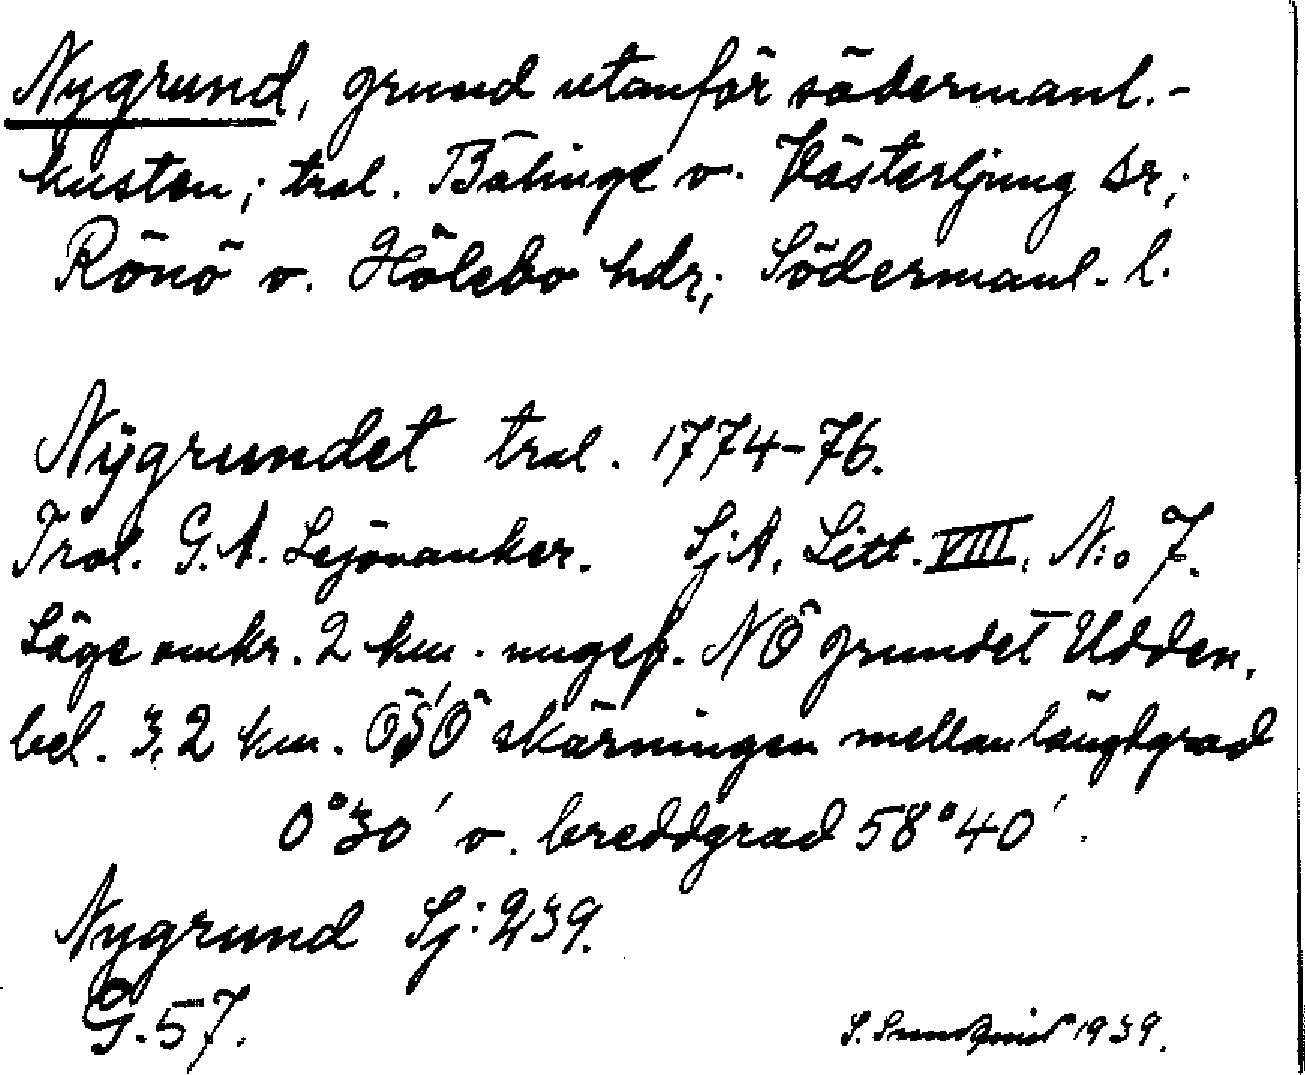 Nygrund, grund utanför södermanl.-
kusten; trol. Bälinge o. Västerljung sr;
Rönö o. Hölebo hdr; Södermanl. l.
Nÿgrundet trol. 1774-76.
Trol. G. A. Lejonanker. SjA, Litt. VIII, N:o 7.
Läge omkr. 2 km. ungef. NÖ grundet Udden,
bel. 3,2 km. ÖSÖ skärningen mellan längdgrad
0°30′ o. breddgrad 58°40′.
Nygrund Sj: 239.
G. 57.
S. Sundqvist 1939.